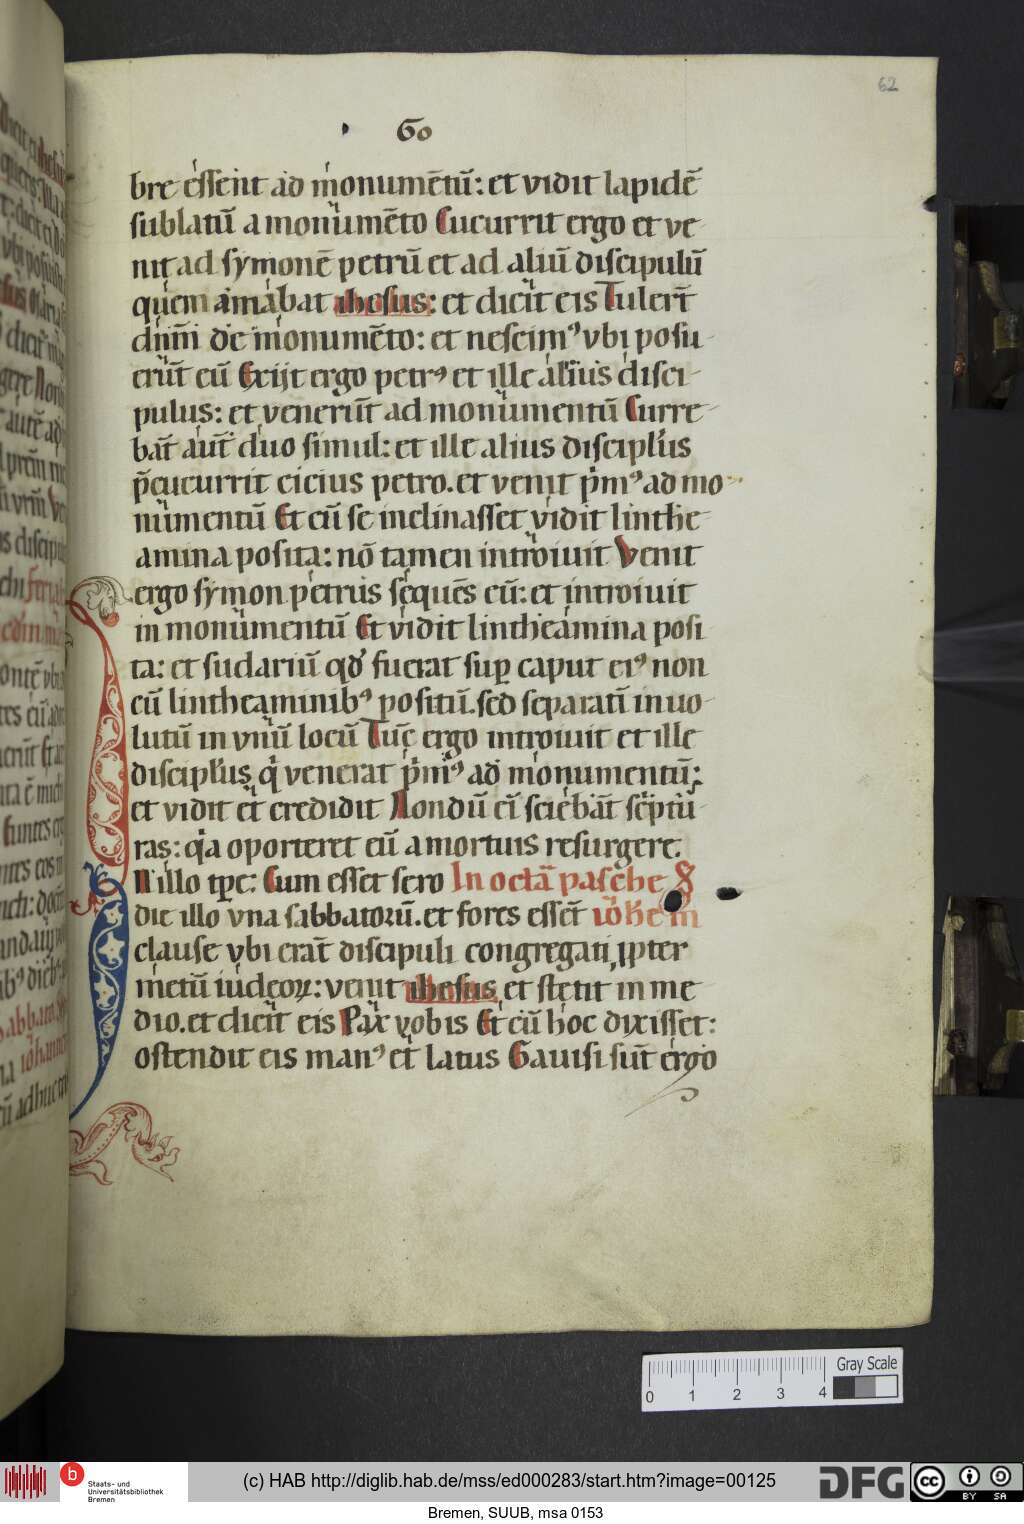 62
Go
bre essent ad monumētū: et vidit lapidē
sublatū a monumēto Cucurrit ergo et ve-
nit ad symonē petrū et ad aliū discipulū
quem amabat ihesus: et dicit eis Tulerūt
dn̄m de monumēto: et nescimꝰ vbi posu-
erūt eū Exijt ergo petrꝰ et ille alius disci-
pulus: et venerūt ad monumentū Curre-
bāt aut̄ duo simul: et ille alius discipl̓us
p̄cucurrit cicius petro. et venit pͥmꝰ ad mo-
numentū Et cū se inclinasset vidit linthe-
amina posita: nō tamen introiuit Venit
ergo symon petrus sequēs eū: et introiuit
in monumentū Et vidit lintheamina posi
ta: et sudariū qd̓ fuerat suꝑ caput eiꝰ non
cū lintheaminibꝰ positū. sed separatū inuo-
lutū in vnū locū Tūc ergo introiuit et ille
discipl̓us qͥ venerat pͥmꝰ ad monumentū:
et vidit et credidit Nondū eī sciebāt sc̓ptu-
ras: qͥa oporteret eū a mortuis resurgere.
N illo tp̄e: Cum esset sero In octā pasche
die illo vna sabbatorū. et fores essēt ioh̄em
clause vbi erāt discipuli congregati ꝓpter
metū iudeoꝝ: venit ihesus et stetit in me
dio. et dicit eis Pax vobis Et cū hoc dixisset:
ostendit eis manꝰ et latus Gauisi sūt ergo
0 1 2 3 4
Gray Scale
b
Staats- und
Universitätsbibliothek
Bremen
(c) HAB http://diglib.hab.de/mss/ed000283/start.htm?image=00125
DFG
cc
BY SA
Bremen, SUUB, msa 0153